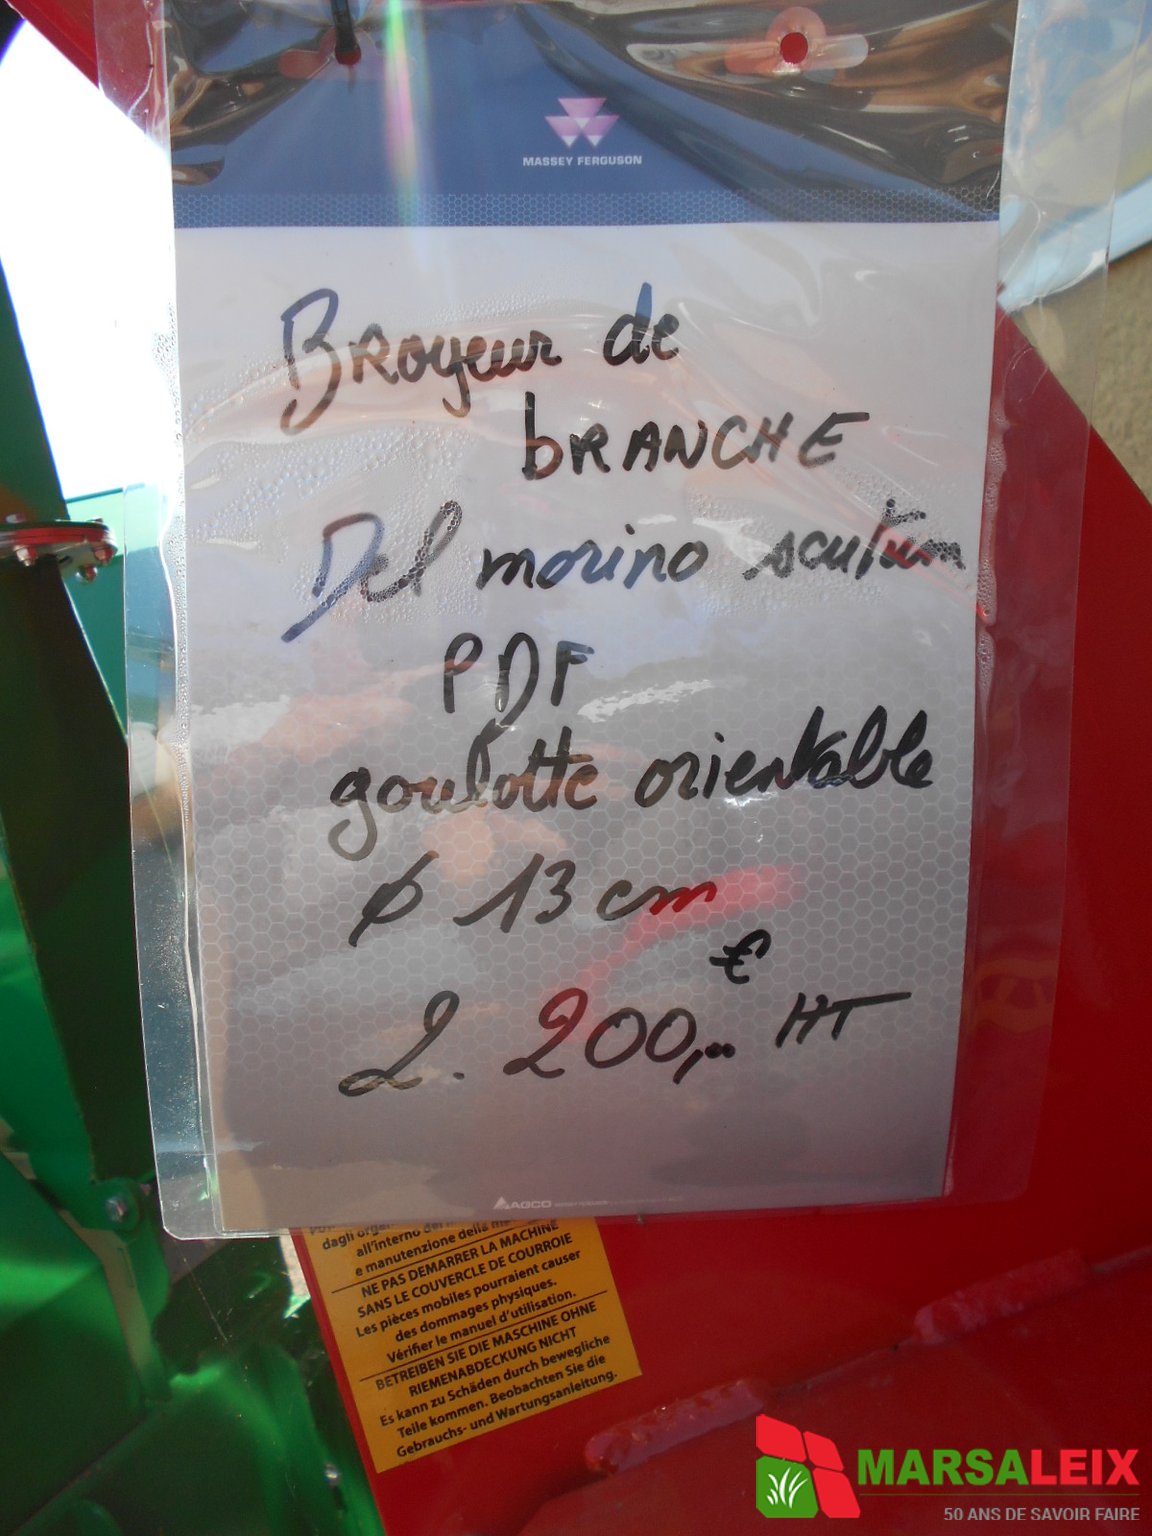 MASSEY FERGUSON
Broyeur de
bRANCHE
Del morino scutum
PDF
goulotte orientable
ø 13 cm
€
2.200,.. HT
AGCO
dagli orga
all'interno del
e manutenzione della
NE PAS DEMARRER LA MACHINE
SANS LE COUVERCLE DE COURROIE
Les pièces mobiles pourraient causer
des dommages physiques.
Vérifier le manuel d'utilisation.
BETREIBEN SIE DIE MASCHINE OHNE
RIEMENABDECKUNG NICHT
Es kann zu Schäden durch bewegliche
Teile kommen. Beobachten Sie die
Gebrauchs- und Wartungsanleitung.
MARSALEIX
50 ANS DE SAVOIR FAIRE